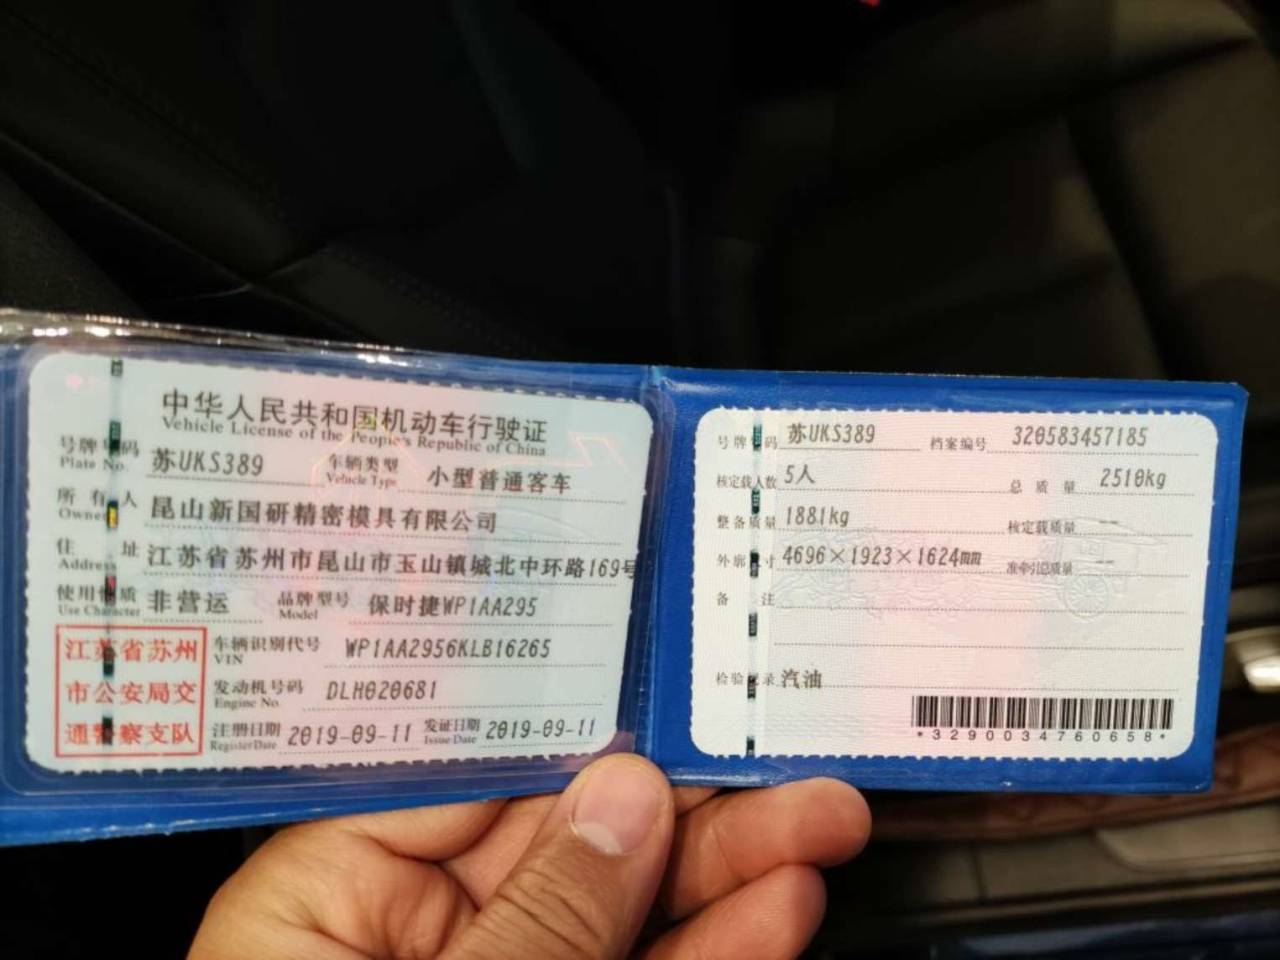 中华人民共和国机动车行驶证
Vehicle License of the People's Republic of China
号牌号码 苏UKS389 车辆类型 小型普通客车
Plate No. Vehicle Type
所有人 昆山新国研精密模具有限公司
Owner
住址 江苏省苏州市昆山市玉山镇城北中环路169号
Address
使用性质 非营运 品牌型号 保时捷WP1AA295
Use Character Model
江苏省苏州
市公安局交
通警察支队
车辆识别代号 WP1AA2956KLB16265
VIN
发动机号码 DLH020681
Engine No.
注册日期 2019-09-11 发证日期 2019-09-11
Register Date Issue Date
号牌号码 苏UKS389 档案编号 320583457185
核定载人数 5人 总质量 2510kg
整备质量 1881kg 核定载质量 --
外廓尺寸 4696×1923×1624mm 准牵引总质量 --
备注
检验记录 汽油
*3290034760658*